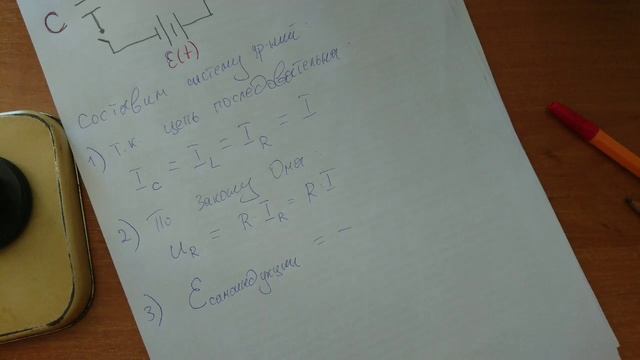 C
ε(t)
Составим систему ур-ний:
1) т.к цепь последовательна:
I_C = I_L = I_R = I
2) По закону Ома:
U_R = R I_R = R I
3) ε самоиндукции = -